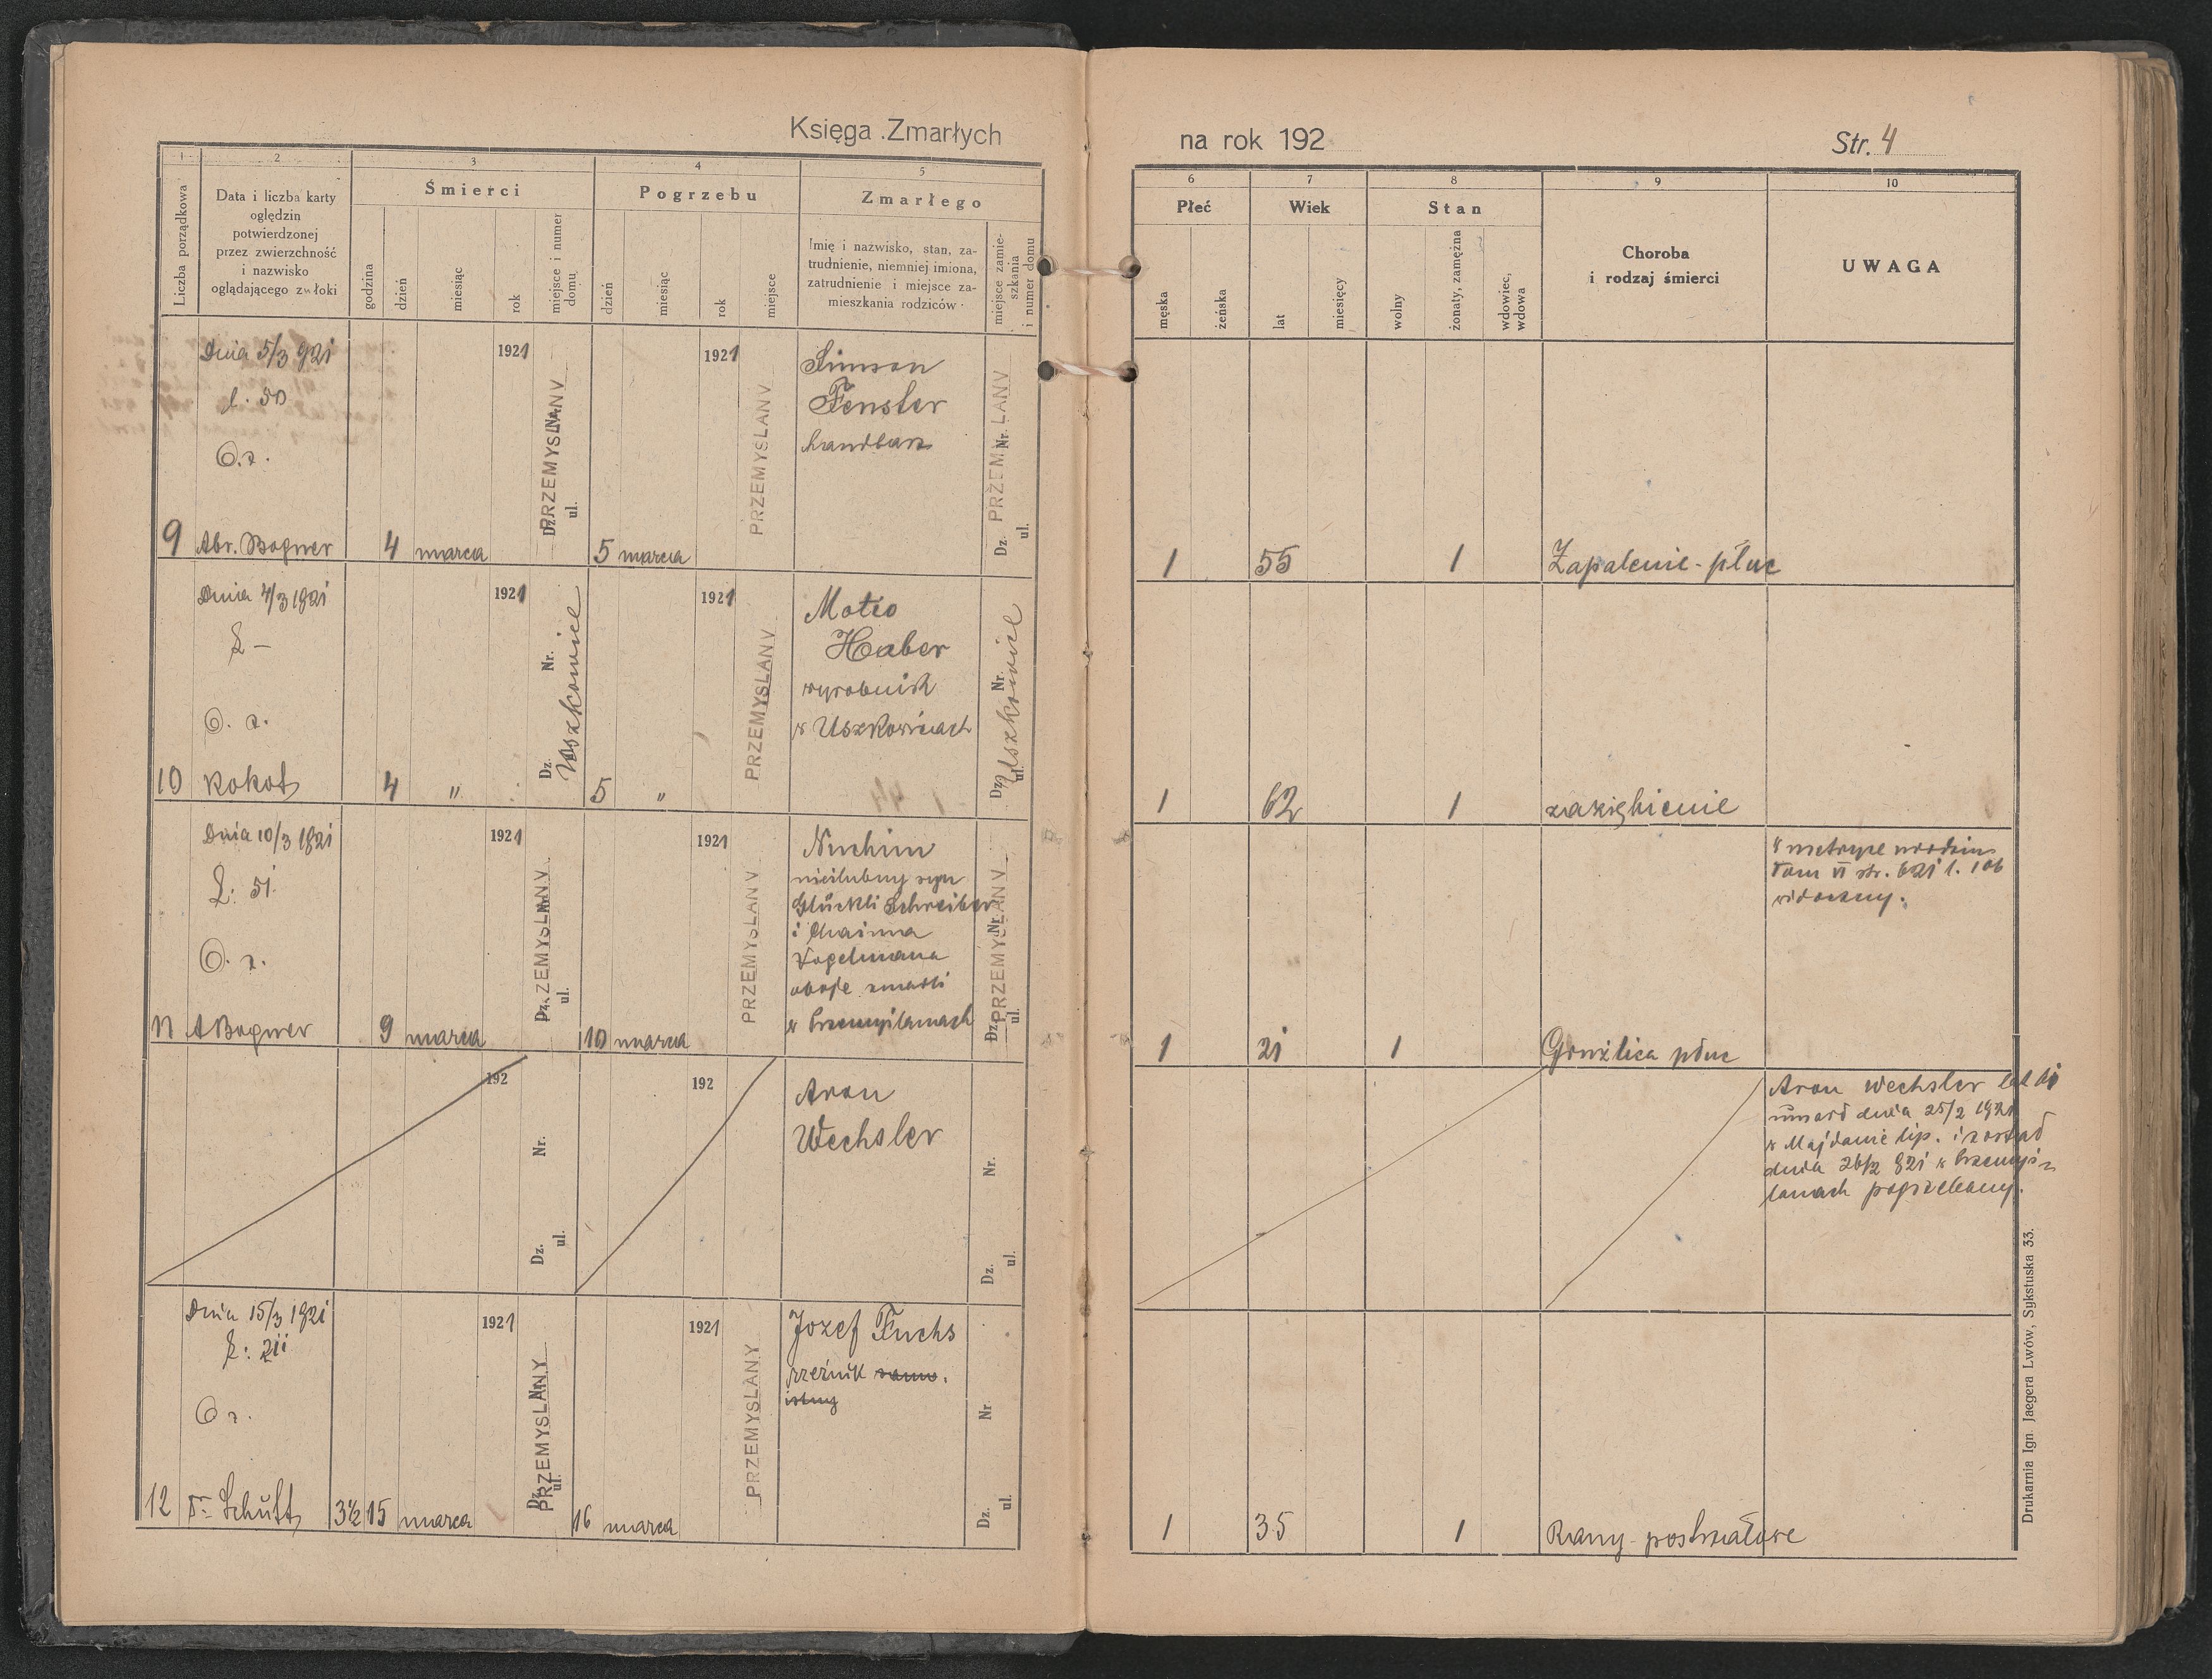 Księga Zmarłych
na rok 192
Str. 4
1
2
3
4
5
6
7
8
9
10
Liczba porządkowa
Data i liczba karty
oględzin
potwierdzonej
przez zwierzchność
i nazwisko
oglądającego zwłoki
Śmierci
godzina
dzień
miesiąc
rok
miejsce i numer
domu
Pogrzebu
dzień
miesiąc
rok
miejsce
Zmarłego
Imię i nazwisko, stan, za-
trudnienie, niemniej imiona,
zatrudnienie i miejsce za-
mieszkania rodziców
miejsce zamie-
szkania
i numer domu
Płeć
męska
żeńska
Wiek
lat
miesięcy
Stan
wolny
żonaty, zamężna
wdowiec,
wdowa
Choroba
i rodzaj śmierci
UWAGA
Dnia 5/3 921
l. 50
O. z.
9 Abr. Bogner
4 marca
1921
PRZEMYSLANY
Dz. Nr.
ul.
5 marca
1921
PRZEMYSLANY
Simson
Fenster
handlarz
PRZEMYSLANY
Dz. Nr.
ul.
1
55
1
Zapalenie płuc
Dnia 4/3 1921
L –
O. z.
10 Kokot
4 "
1921
Dz. Nr.
Uszkowice
5 "
1921
PRZEMYSLANY
Motio
Haber
wyrobnik
w Uszkowicach
Dz. Nr.
ul.
Uszkowice
1
62
1
zaziębienie
Dnia 10/3 1921
L: 51.
O. z.
11 A Bogner
9 marca
1921
PRZEMYSLANY
Dz. Nr.
ul.
10 marca
1921
PRZEMYSLANY
Nuchim
nieślubny syn
Glückli Schreiber
i Chaima
Vogelmana
oboje zmarli
w Przemyślanach
PRZEMYSLANY
Dz. Nr.
ul.
1
21
1
Gruźlica płuc
w metryce urodzin
Tom VI str. 621 l. 106
widoczny.
192
Dz. Nr.
ul.
192
Aron
Wechsler
Dz. Nr.
ul.
Aron Wechsler lat
umarł dnia 25/2 1921
w Majdanie lip. i został
dnia 26/2 921 w Przemyś-
lanach pogrzebany.
Dnia 15/3 1921
L: 211
O z.
12 Dr Schutt
3½ 15 marca
1921
PRZEMYSLANY
Dz. Nr.
ul.
16 marca
1921
PRZEMYSLANY
Jozef Fuchs
rzeźnik samo.
istny
Dz. Nr.
ul.
1
35
1
Rany postrzałowe
Drukarnia Ign. Jaegera Lwów, Sykstuska 33.